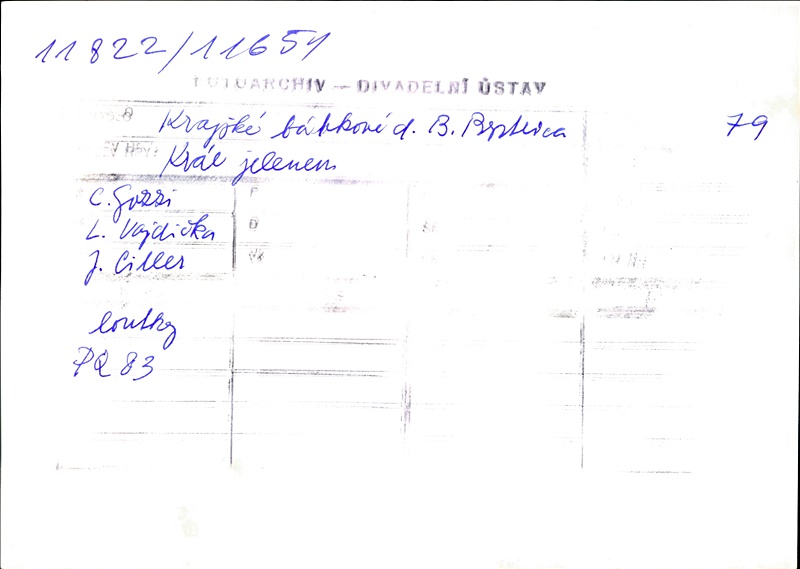 11822/11651
FOTOARCHIV — DIVADELNÍ ÚSTAV
Krajské bábkové d. B. Bystrica 79
Král jelenem
C. Gozzi
L. Vajdička
J. Ciller
loutky
PQ 83